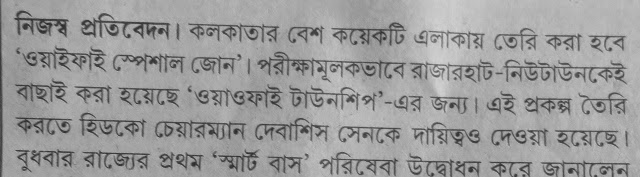 নিজস্ব প্রতিবেদন। কলকাতার বেশ কয়েকটি এলাকায় তৈরি করা হবে
‘ওয়াইফাই স্পেশাল জোন’। পরীক্ষামূলকভাবে রাজারহাট-নিউটাউনকেই
বাছাই করা হয়েছে ‘ওয়াওফাই টাউনশিপ’-এর জন্য। এই প্রকল্প তৈরি
করতে হিডকো চেয়ারম্যান দেবাশিস সেনকে দায়িত্বও দেওয়া হয়েছে।
বুধবার রাজ্যের প্রথম ‘স্মার্ট বাস’ পরিসেবা উদ্বোধন করে জানালেন